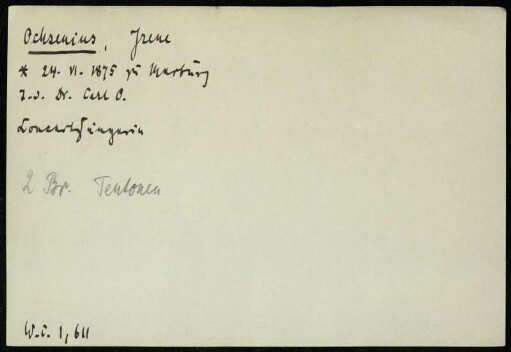 Ochsenius, Irene
* 24. VI. 1875 zu Marburg
T. v. Dr. Carl O.
Konzertsängerin
2 Br. Teutonen
W.C. 1, 611